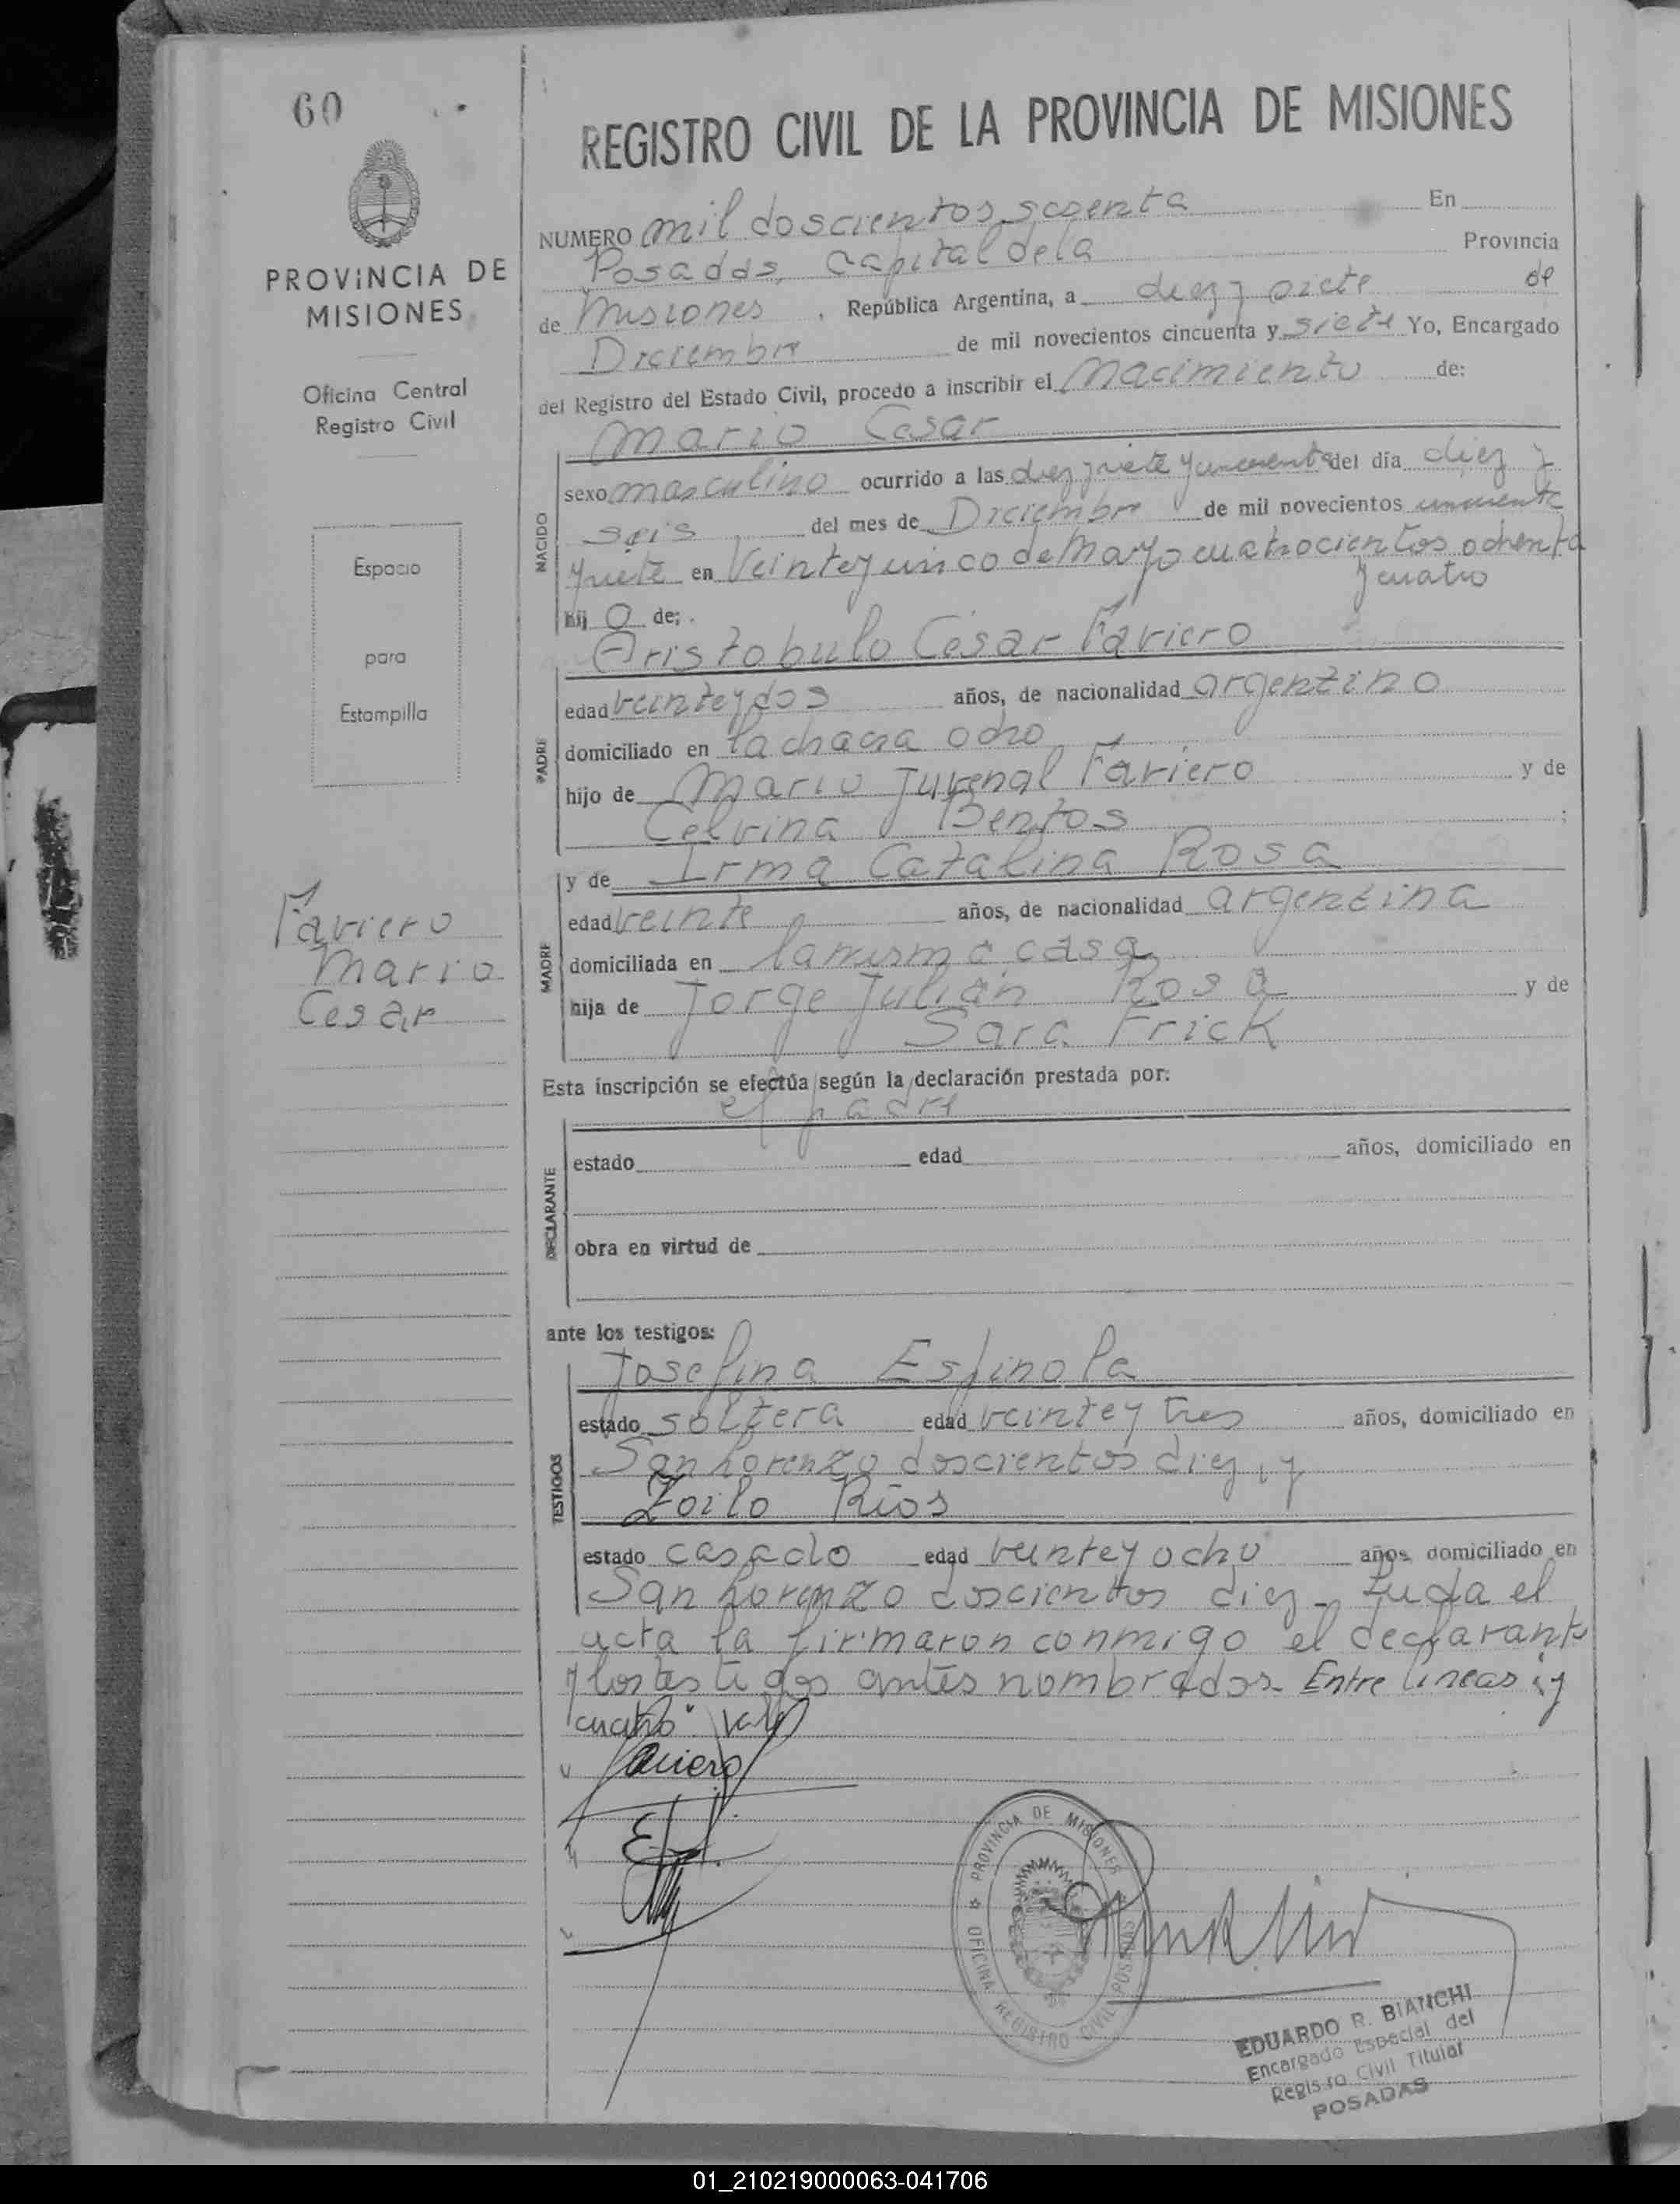 60
PROVINCIA DE
MISIONES
Oficina Central
Registro Civil
Espacio
para
Estampilla
Faviero
Mario
Cesar
REGISTRO CIVIL DE LA PROVINCIA DE MISIONES
NUMERO mil doscientos sesenta En
Posadas, Capital de la Provincia
de Misiones, República Argentina, a diez y siete de
Diciembre de mil novecientos cincuenta y siete Yo, Encargado
del Registro del Estado Civil, procedo a inscribir el Nacimiento de:
Mario Cesar
NACIDO
sexo masculino ocurrido a las diez y siete y cincuenta del día diez y
seis del mes de Diciembre de mil novecientos cincuenta
y siete en Veinte y cinco de Mayo cuatrocientos ochenta
y cuatro
hij o de;
Aristobulo Cesar Faviero
PADRE
edad veinte y dos años, de nacionalidad argentino
domiciliado en la chacra ocho
hijo de Mario Juvenal Faviero y de
Celvina Bentos ;
y de Irma Catalina Rosa
MADRE
edad veinte años, de nacionalidad argentina
domiciliada en la misma casa
hija de Jorge Julián Rosa y de
Sara Frick
Esta inscripción se efectúa según la declaración prestada por:
el padre
DECLARANTE
estado edad años, domiciliado en
obra en virtud de
ante los testigos:
Josefina Espinola
TESTIGOS
estado soltera edad veinte y tres años, domiciliado en
San Lorenzo doscientos diez, y
Zoilo Ríos
estado casado edad veinte y ocho años, domiciliado en
San Lorenzo doscientos diez - Leida el
acta la firmaron conmigo el declarante
y los testigos antes nombrados - Entre lineas "y
cuatro" Vale
Faviero
PROVINCIA DE MISIONES
OFICINA REGISTRO CIVIL POSADAS
EDUARDO R. BIANCHI
Encargado Especial del
Registro Civil Titular
POSADAS
01_210219000063-041706